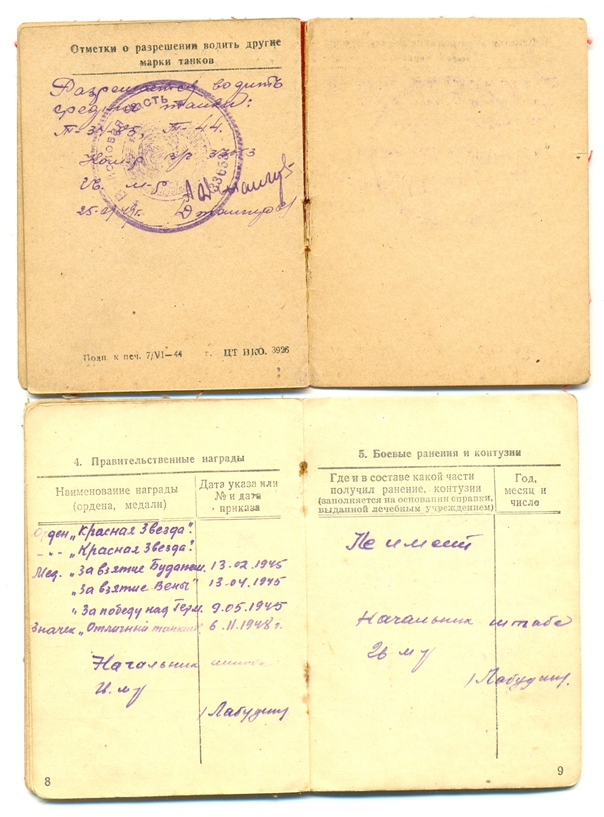 Отметки о разрешении водить другие
марки танков
Разрешается водить
средние танки:
Т-34-85, Т-44.
ВОЙСКОВАЯ ЧАСТЬ
25-
Подп. к печ. 7/VI—44 г. ЦТ ВКО. 3926
4. Правительственные награды
Наименование награды
(ордена, медали)
Дата указа или
№ и дата
приказа
Орден „Красная Звезда".
-„- „Красная Звезда".
Мед. „За взятие Будапеш. 13.02.1945
„За взятие Вены" 13.04.1945
„За победу над Герм. 9.05.1945
Значек „Отличный танкист 6.11.1948 г.
Начальник штаба
/Лабудин/
8
5. Боевые ранения и контузии
Где и в составе какой части
получил ранение, контузии
(заполняется на основании справки,
выданной лечебным учреждением)
Год,
месяц и
число
Не имеет
Начальник штаба
/Лабудин/.
9